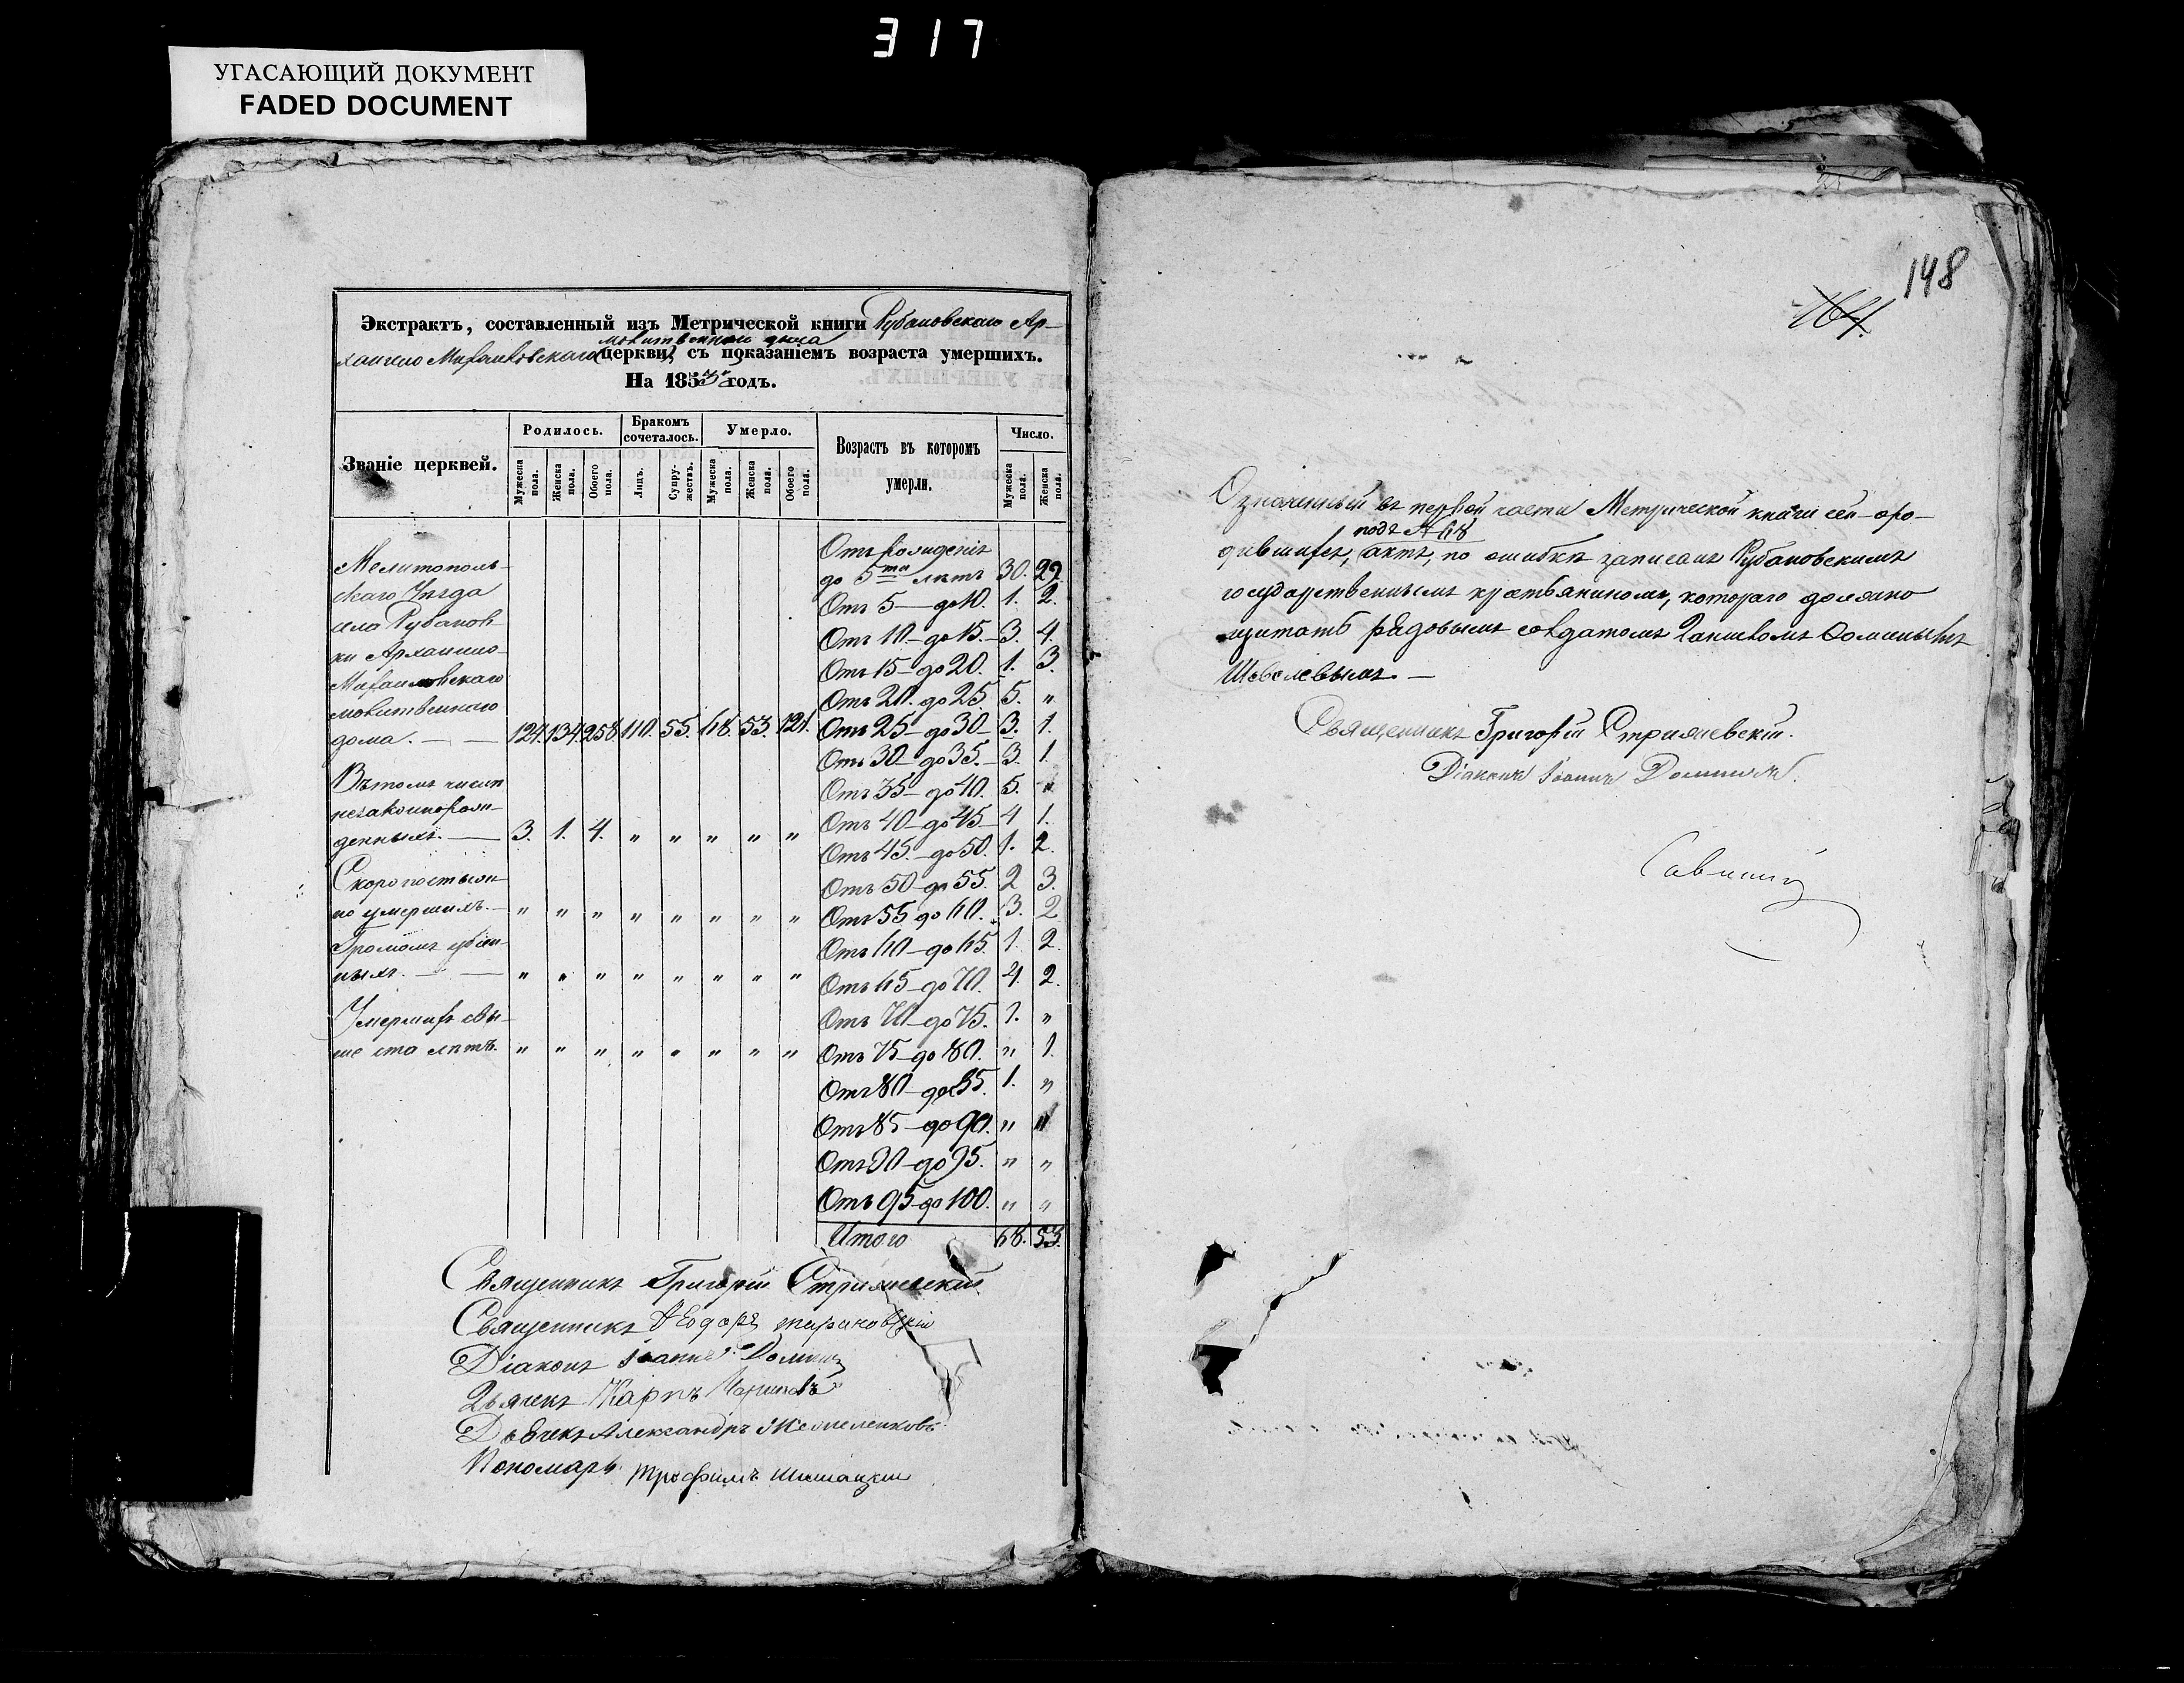 317
УГАСАЮЩИЙ ДОКУМЕНТ
FADED DOCUMENT
Экстрактъ, составленный изъ Метрической книги Рубановскаго Ар-
молитвеннаго дома
хангело Михаиловскаго (церкви) съ показаніемъ возраста умершихъ.
На 1853й годъ.
Званіе церквей.
Родилось.
Бракомъ сочеталось.
Умерло.
Возрастъ въ которомъ умерли.
Число.
Мужеска пола.
Женска пола.
Обоего пола.
Лицъ.
Супружествъ.
Мужеска пола.
Женска пола.
Обоего пола.
Мужеска пола.
Женска пола.
Мелитополь-
скаго Уѣзда
села Рубанов-
ки Архангело-
Михаиловскаго
молитвеннаго
дома. — — 124. 134. 258. 110. 55. 68. 53. 121.
Въ томъ числѣ
незаконнорож-
денныхъ. — 3. 1. 4. " " " " "
Скоропостыж-
но умершихъ. — " " " " " " " "
Громомъ убіен-
ныхъ. — — " " " " " " " "
Умершихъ свы-
ше ста лѣтъ. " " " " " " " "
Отъ рожденія
до 5ти лѣтъ 30. 29.
Отъ 5 — до 10. 1. 2.
Отъ 10 — до 15. — 3. 4.
Отъ 15 — до 20. 1. 3.
Отъ 20 — до 25. 5. "
Отъ 25 — до 30 — 3. 1.
Отъ 30 — до 35. — 3. 1.
Отъ 35 — до 40. 5. "
Отъ 40 — до 45 — 4 1.
Отъ 45. — до 50. 1. 2.
Отъ 50 — до 55. 2 3.
Отъ 55 до 60. 3. 2
Отъ 60 — до 65. 1. 2.
Отъ 65 — до 70. 4. 2.
Отъ 70 — до 75. 1. "
Отъ 75 — до 80. " 1.
Отъ 80 — до 85. 1. "
Отъ 85 — до 90. " "
Отъ 90 — до 95. " "
Отъ 95 — до 100. " "
Итого 68. 53.
Священникъ Григорій Стрижевскій.
Священникъ Ѳеодоръ
Діаконъ Іоаннъ
Дьячекъ Карпъ
Дьячекъ Александръ
Пономарь Трофимъ
148
164.
Означенный въ первой части Метрической книги сей о ро-
подъ № 68
дившихся, актъ, по ошибкѣ записанъ Рубановскимъ
государственнымъ крестьяниномъ, котораго должно
щитать рядовымъ солдатомъ
Шевелевымъ. —
Священникъ Григорій Стрижевскій.
Діаконъ Іоаннъ